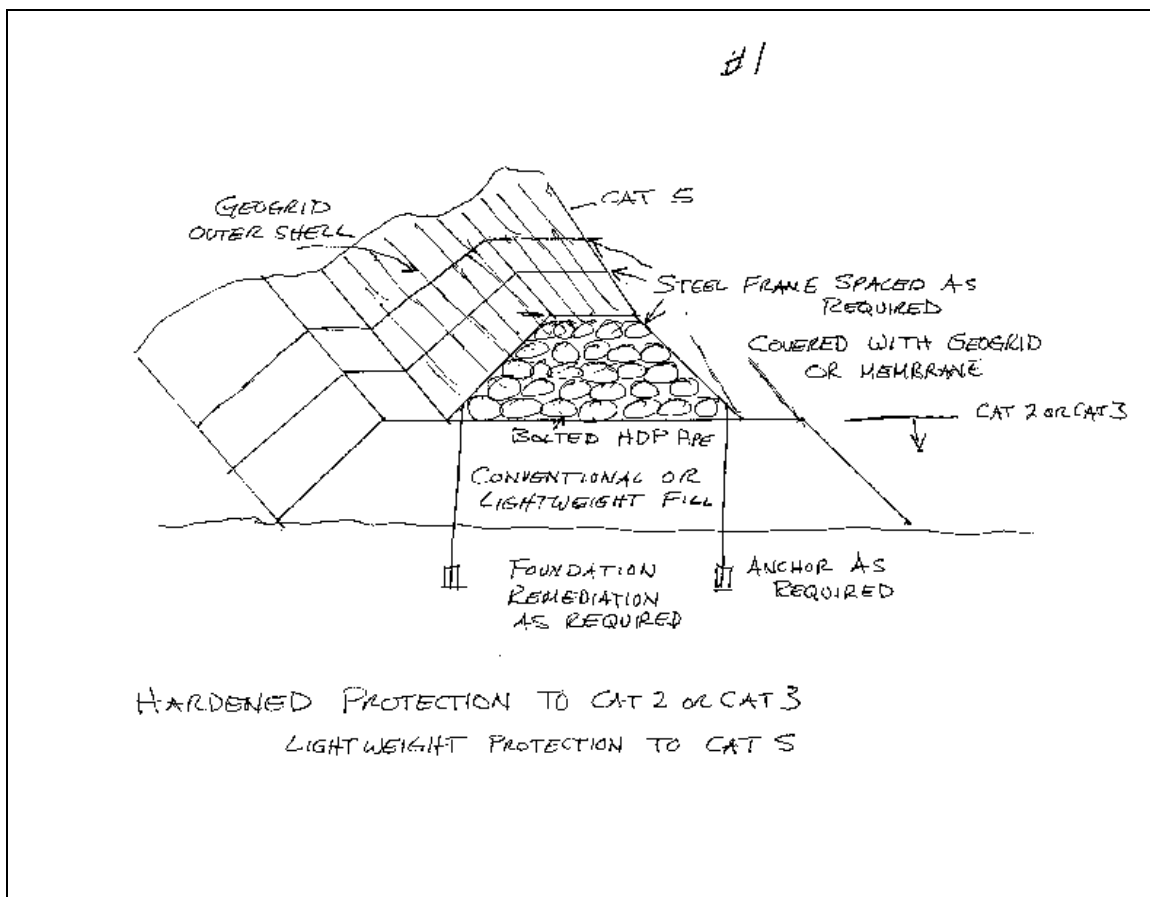 #1
CAT 5
GEOGRID
OUTER SHELL
STEEL FRAME SPACED AS
REQUIRED
COVERED WITH GEOGRID
OR MEMBRANE
CAT 2 OR CAT 3
BOLTED HDP PIPE
CONVENTIONAL OR
LIGHTWEIGHT FILL
FOUNDATION
REMEDIATION
AS REQUIRED
ANCHOR AS
REQUIRED
HARDENED PROTECTION TO CAT 2 OR CAT 3
LIGHTWEIGHT PROTECTION TO CAT 5